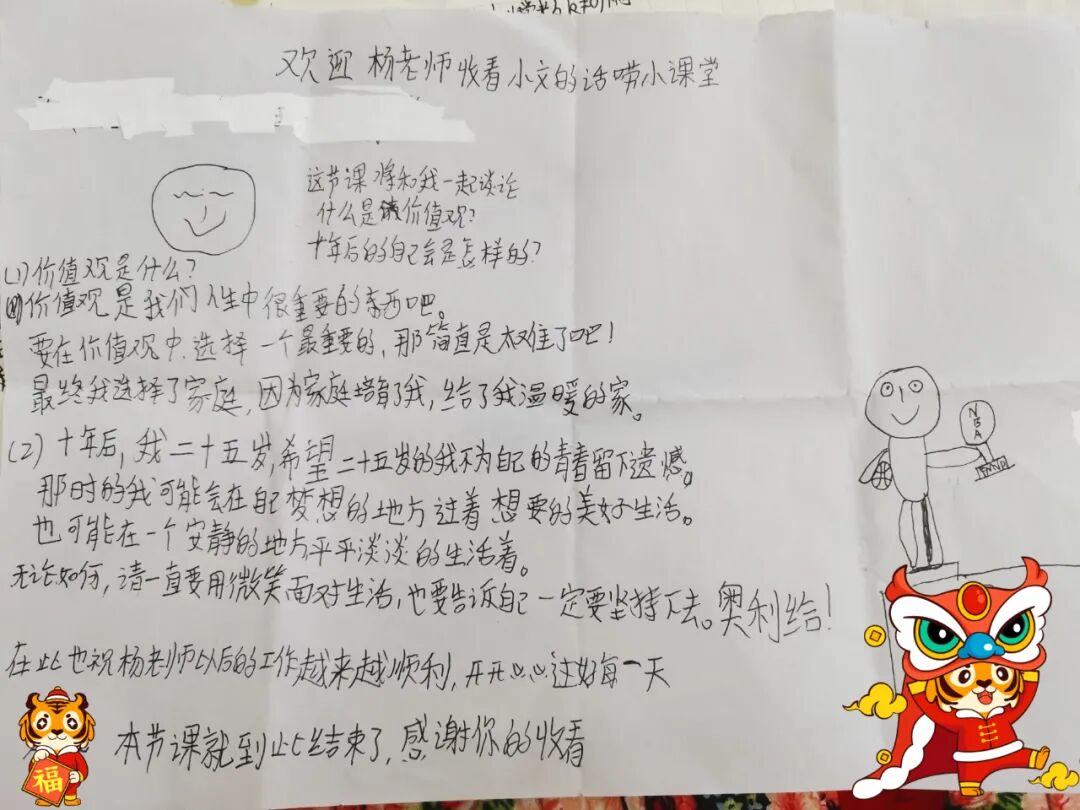 欢迎 杨老师收看小文的话唠小课堂
这节课将和我一起谈论
什么是价值观?
十年后的自己会是怎样的?
(1)价值观是什么?
价值观是我们人生中很重要的东西吧。
要在价值观中选择一个最重要的,那简直是太难了吧!
最终我选择了家庭,因为家庭培育了我,给了我温暖的家。
(2)十年后,我二十五岁,希望二十五岁的我不为自己的青春留下遗憾。
那时的我可能会在自己梦想的地方过着想要的美好生活。
也可能在一个安静的地方平平淡淡的生活着。
无论如何,请一直要用微笑面对生活,也要告诉自己一定要坚持下去。奥利给!
在此也祝杨老师以后的工作越来越顺利,开开心心过好每一天
本节课就到此结束了,感谢你的收看
NBA
福